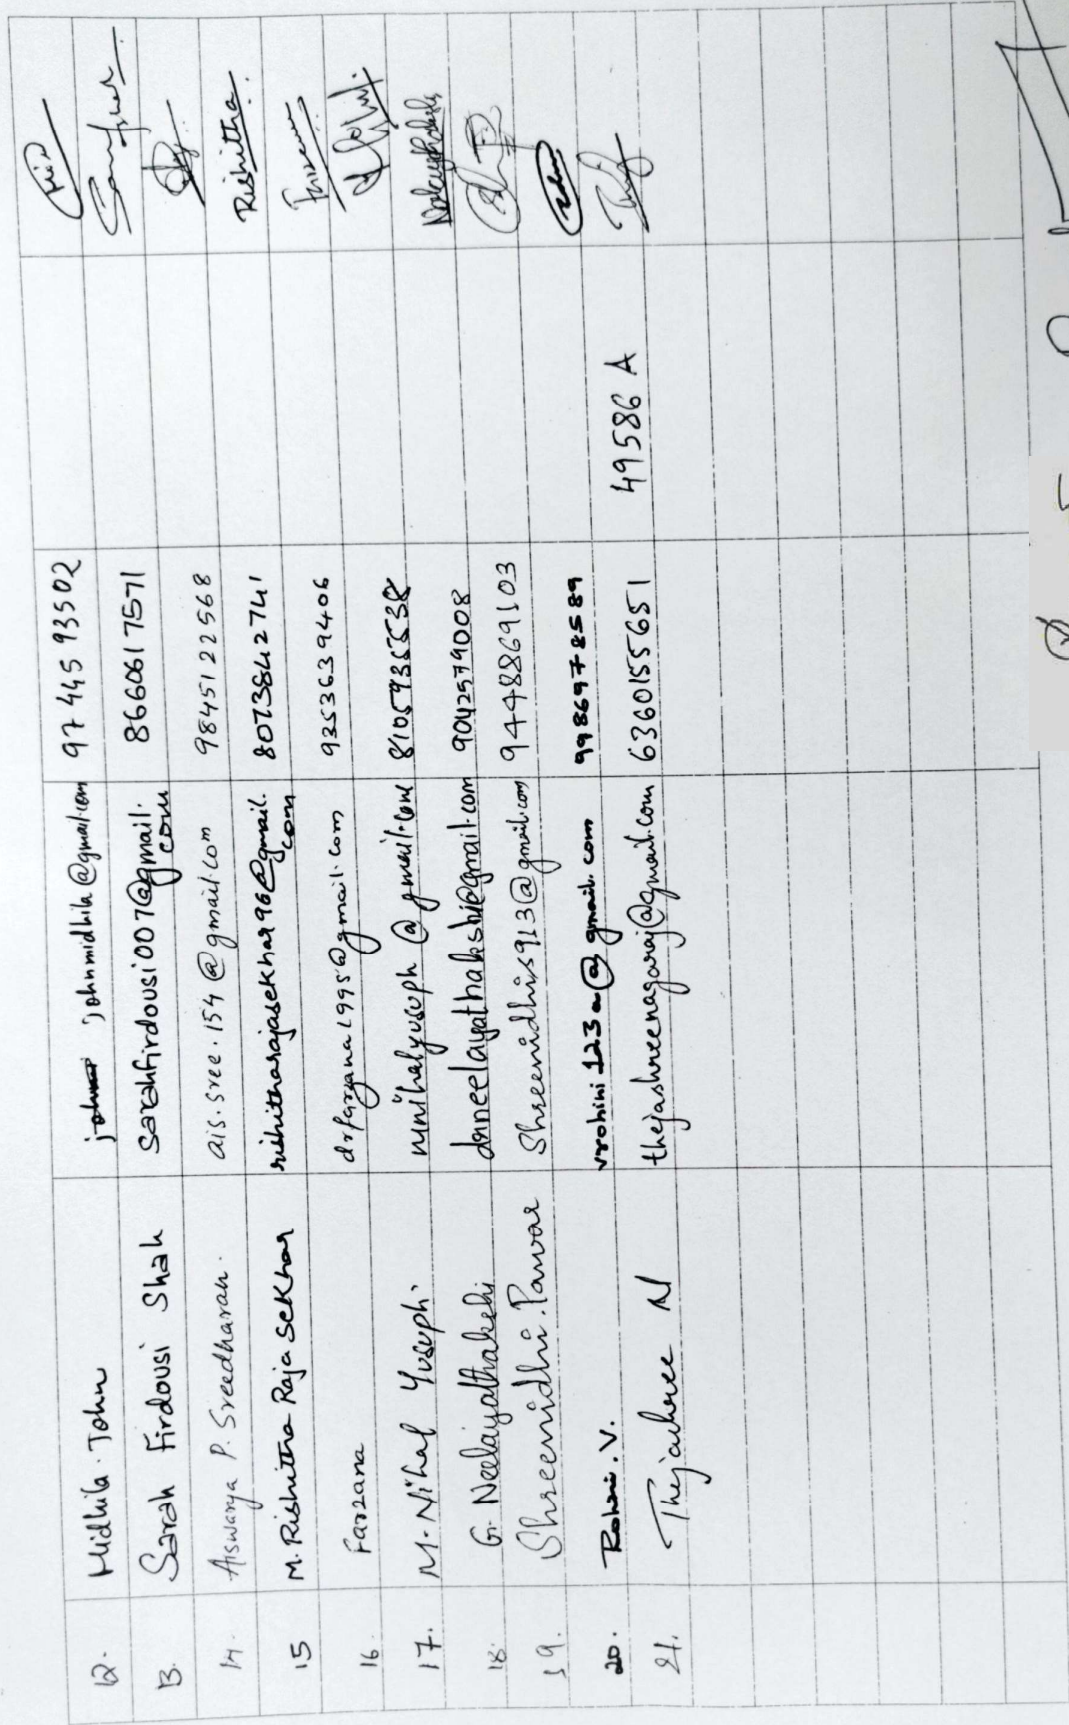 12. Midhila. John johnmidhila@gmail.com 97 445 93502
13. Sarah Firdousi Shah sarahfirdousi007@gmail.com 8660617571
14. Aiswarya P. Sreedharan. ais.sree.154@gmail.com 9845122568
15 M. Rishitha Raja Sekhar rishitharajasekhar96@gmail.com 8073842741 Rishitha
16. Farzana drfarzana1995@gmail.com 9353639406
17. M. Nihal Yusuph. mnihalyusuph@gmail.com
18. G. Neelayathakshi drneelayathakshi@gmail.com 9042579008
19. Shreenidhi. Pawar Shreenidhis913@gmail.com 9448869103
20. Rohini. V. 9986978589
21. Thejashree N thejashreenagaraj@gmail.com 6360155651 49586 A